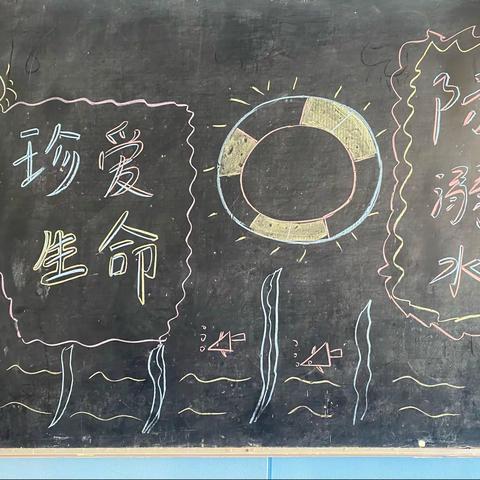 珍爱
生命
防
溺
水